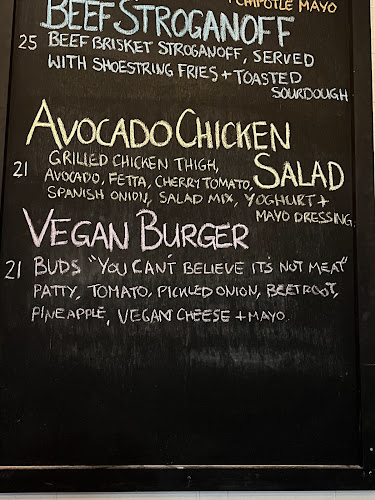 CHIPOTLE MAYO
BEEF STROGANOFF
25 BEEF BRISKET STROGANOFF, SERVED
WITH SHOESTRING FRIES + TOASTED
SOURDOUGH
AVOCADO CHICKEN
SALAD
21 GRILLED CHICKEN THIGH,
AVOCADO, FETTA, CHERRY TOMATO,
SPANISH ONION, SALAD MIX, YOGHURT +
MAYO DRESSING.
VEGAN BURGER
21 BUDS "YOU CAN'T BELIEVE IT'S NOT MEAT"
PATTY, TOMATO, PICKLED ONION, BEETROOT,
PINEAPPLE, VEGAN CHEESE + MAYO.